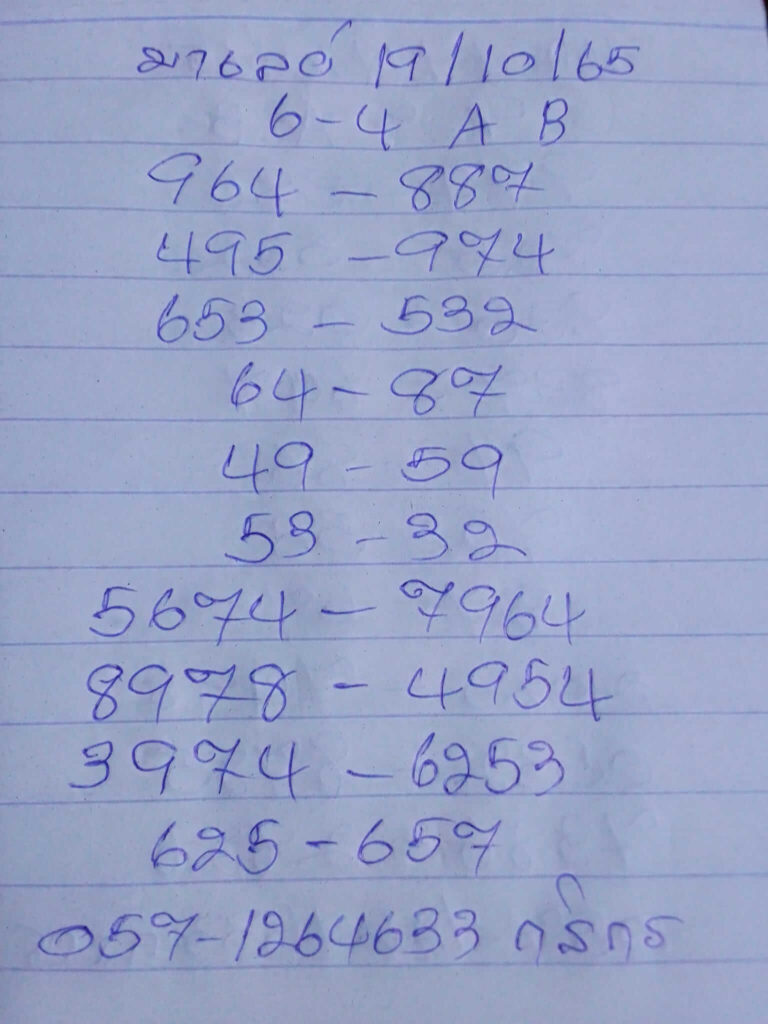 มาเลย์ 19/10/65
6-4 A B
964 - 887
495 - 974
653 - 532
64 - 87
49 - 59
53 - 32
5674 - 7964
8978 - 4954
3974 - 6253
625 - 657
057-1264633 กสิกร